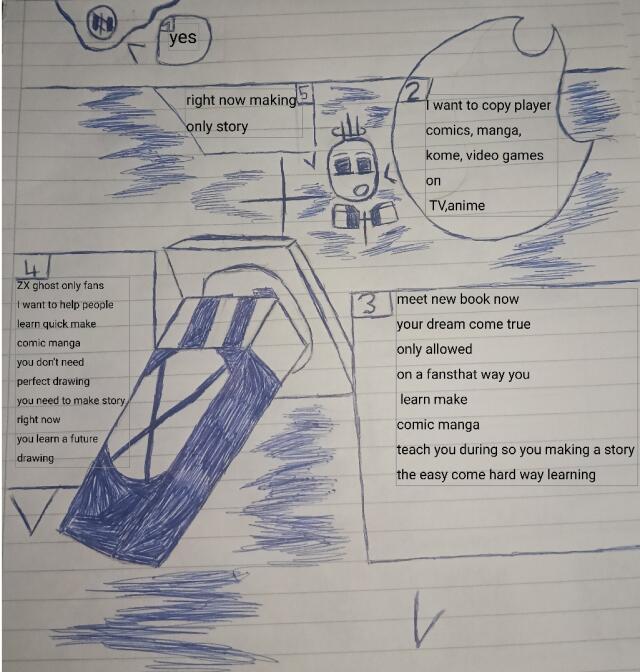 1
yes
5
right now making
only story
2
I want to copy player
comics, manga,
kome, video games
on
TV,anime
4
ZX ghost only fans
I want to help people
learn quick make
comic manga
you don't need
perfect drawing
you need to make story
right now
you learn a future
drawing
3
meet new book now
your dream come true
only allowed
on a fansthat way you
learn make
comic manga
teach you during so you making a story
the easy come hard way learning